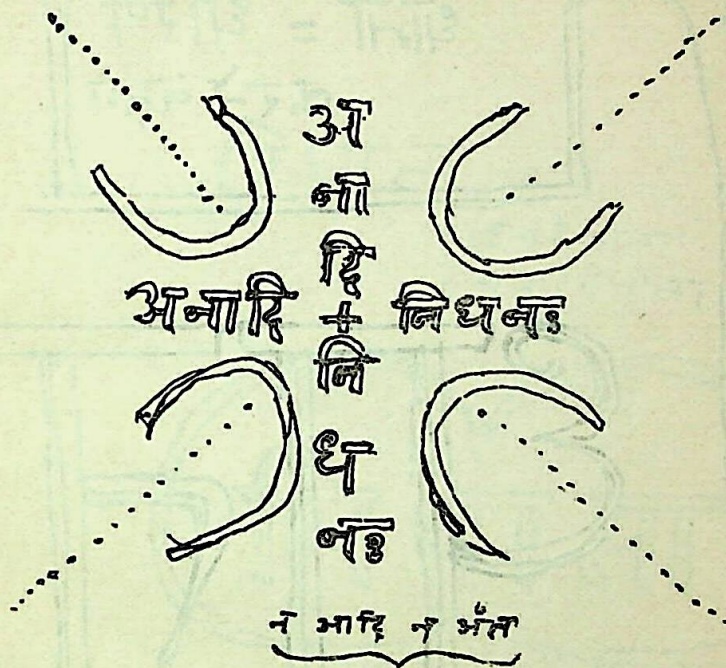 अ
ना
दि
अनादि + निधनः
नि
ध
नः
न आदि न अँत